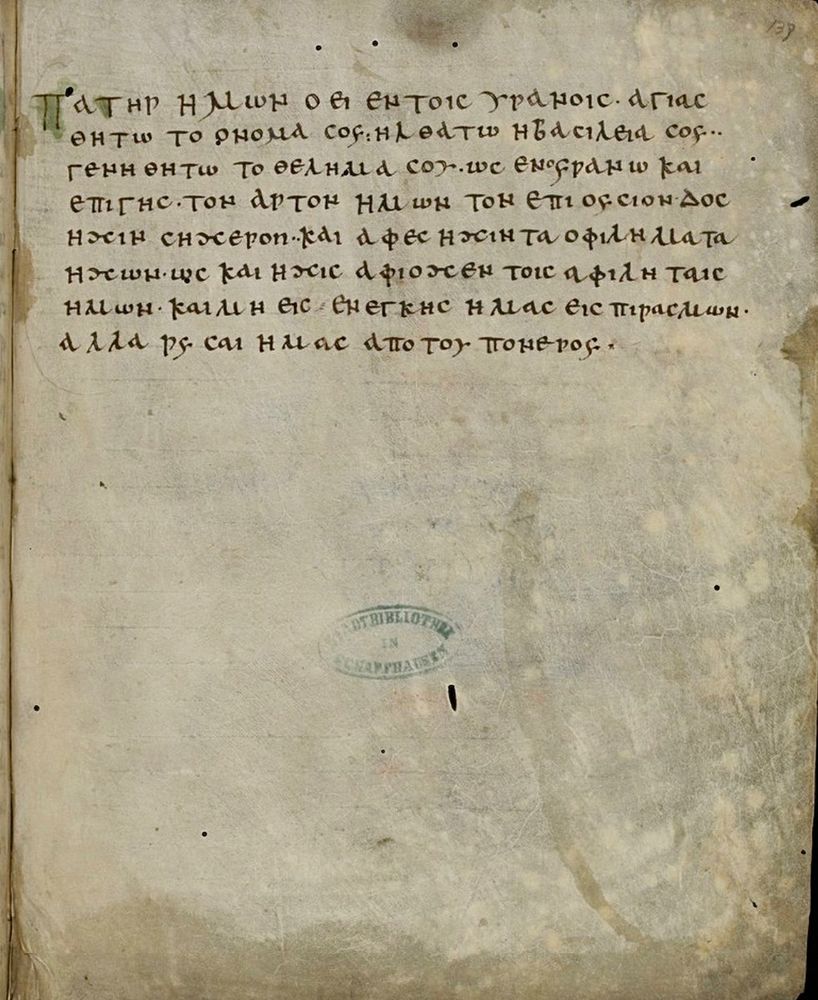 139
ΠΑΤΗΡ ΗΜωΝ Ο ΕΙ ΕΝΤΟΙC ΥΡΑΝΟΙC· ΑΓΙΑC
ΘΗΤω ΤΟ ΟΝΟΜΑ CΟϚ: ΗΛΘΑΤω ΗΒΑCΙΛΕΙΑ CΟϚ··
ΓΕΝΗΘΗΤω ΤΟ ΘΕΛΗΜΑ CΟΥ·ωC ΕΝΟϚΡΑΝω ΚΑΙ
ΕΠΙΓΗC·ΤΟΝ ΑΡΤΟΝ ΗΜωΝ ΤΟΝ ΕΠΙΟϚCΙΟΝ·ΔΟC
ΗΜΙΝ CΗΜΕΡΟΝ··ΚΑΙ ΑΦΕC ΗΜΙΝ ΤΑ ΟΦΙΛΗΜΑΤΑ
ΗΜωΝ·ωC ΚΑΙ ΗΜΙC ΑΦΙΟΜΕΝ ΤΟΙC ΑΦΙΛΗΤΑΙC
ΗΜωΝ· ΚΑΙ ΜΗ ΕΙC ΕΝΕΓΚΗC ΗΜΑC ΕΙC ΠΙΡΑCΜωΝ·
ΑΛΛΑ ΡϚCΑΙ ΗΜΑC ΑΠΟ ΤΟΥ ΠΟΝΕΡΟϚ·
STADTBIBLIOTHEK
IN
SCHAFFHAUSEN